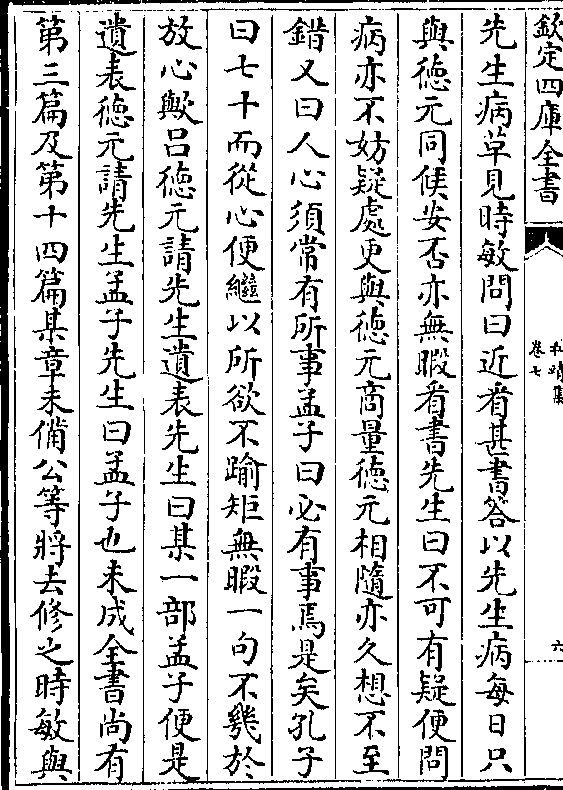 欽定四庫全書
卷七
六
先生病草見時敏問曰近看甚書答以先生病每日只
與德元同候安否亦無暇看書先生曰不可有疑便問
病亦不妨疑處更與德元商量德元相隨亦久想不至
錯又曰人心須常有所事孟子曰必有事焉是矣孔子
曰七十而從心便繼以所欲不踰矩無暇一句不幾於
放心歟吕德元請先生遺表先生曰某一部孟子便是
遺表德元請先生孟子先生曰孟子也未成全書尚有
第三篇及第十四篇某章未備公等將去修之時敏與